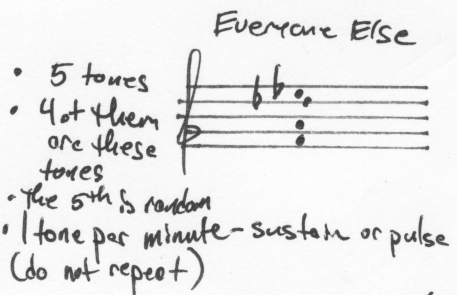 Everyone Else
• 5 tones
• 4 of them
are these
tones
• The 5th is random
• 1 tone per minute - sustain or pulse
(do not repeat)